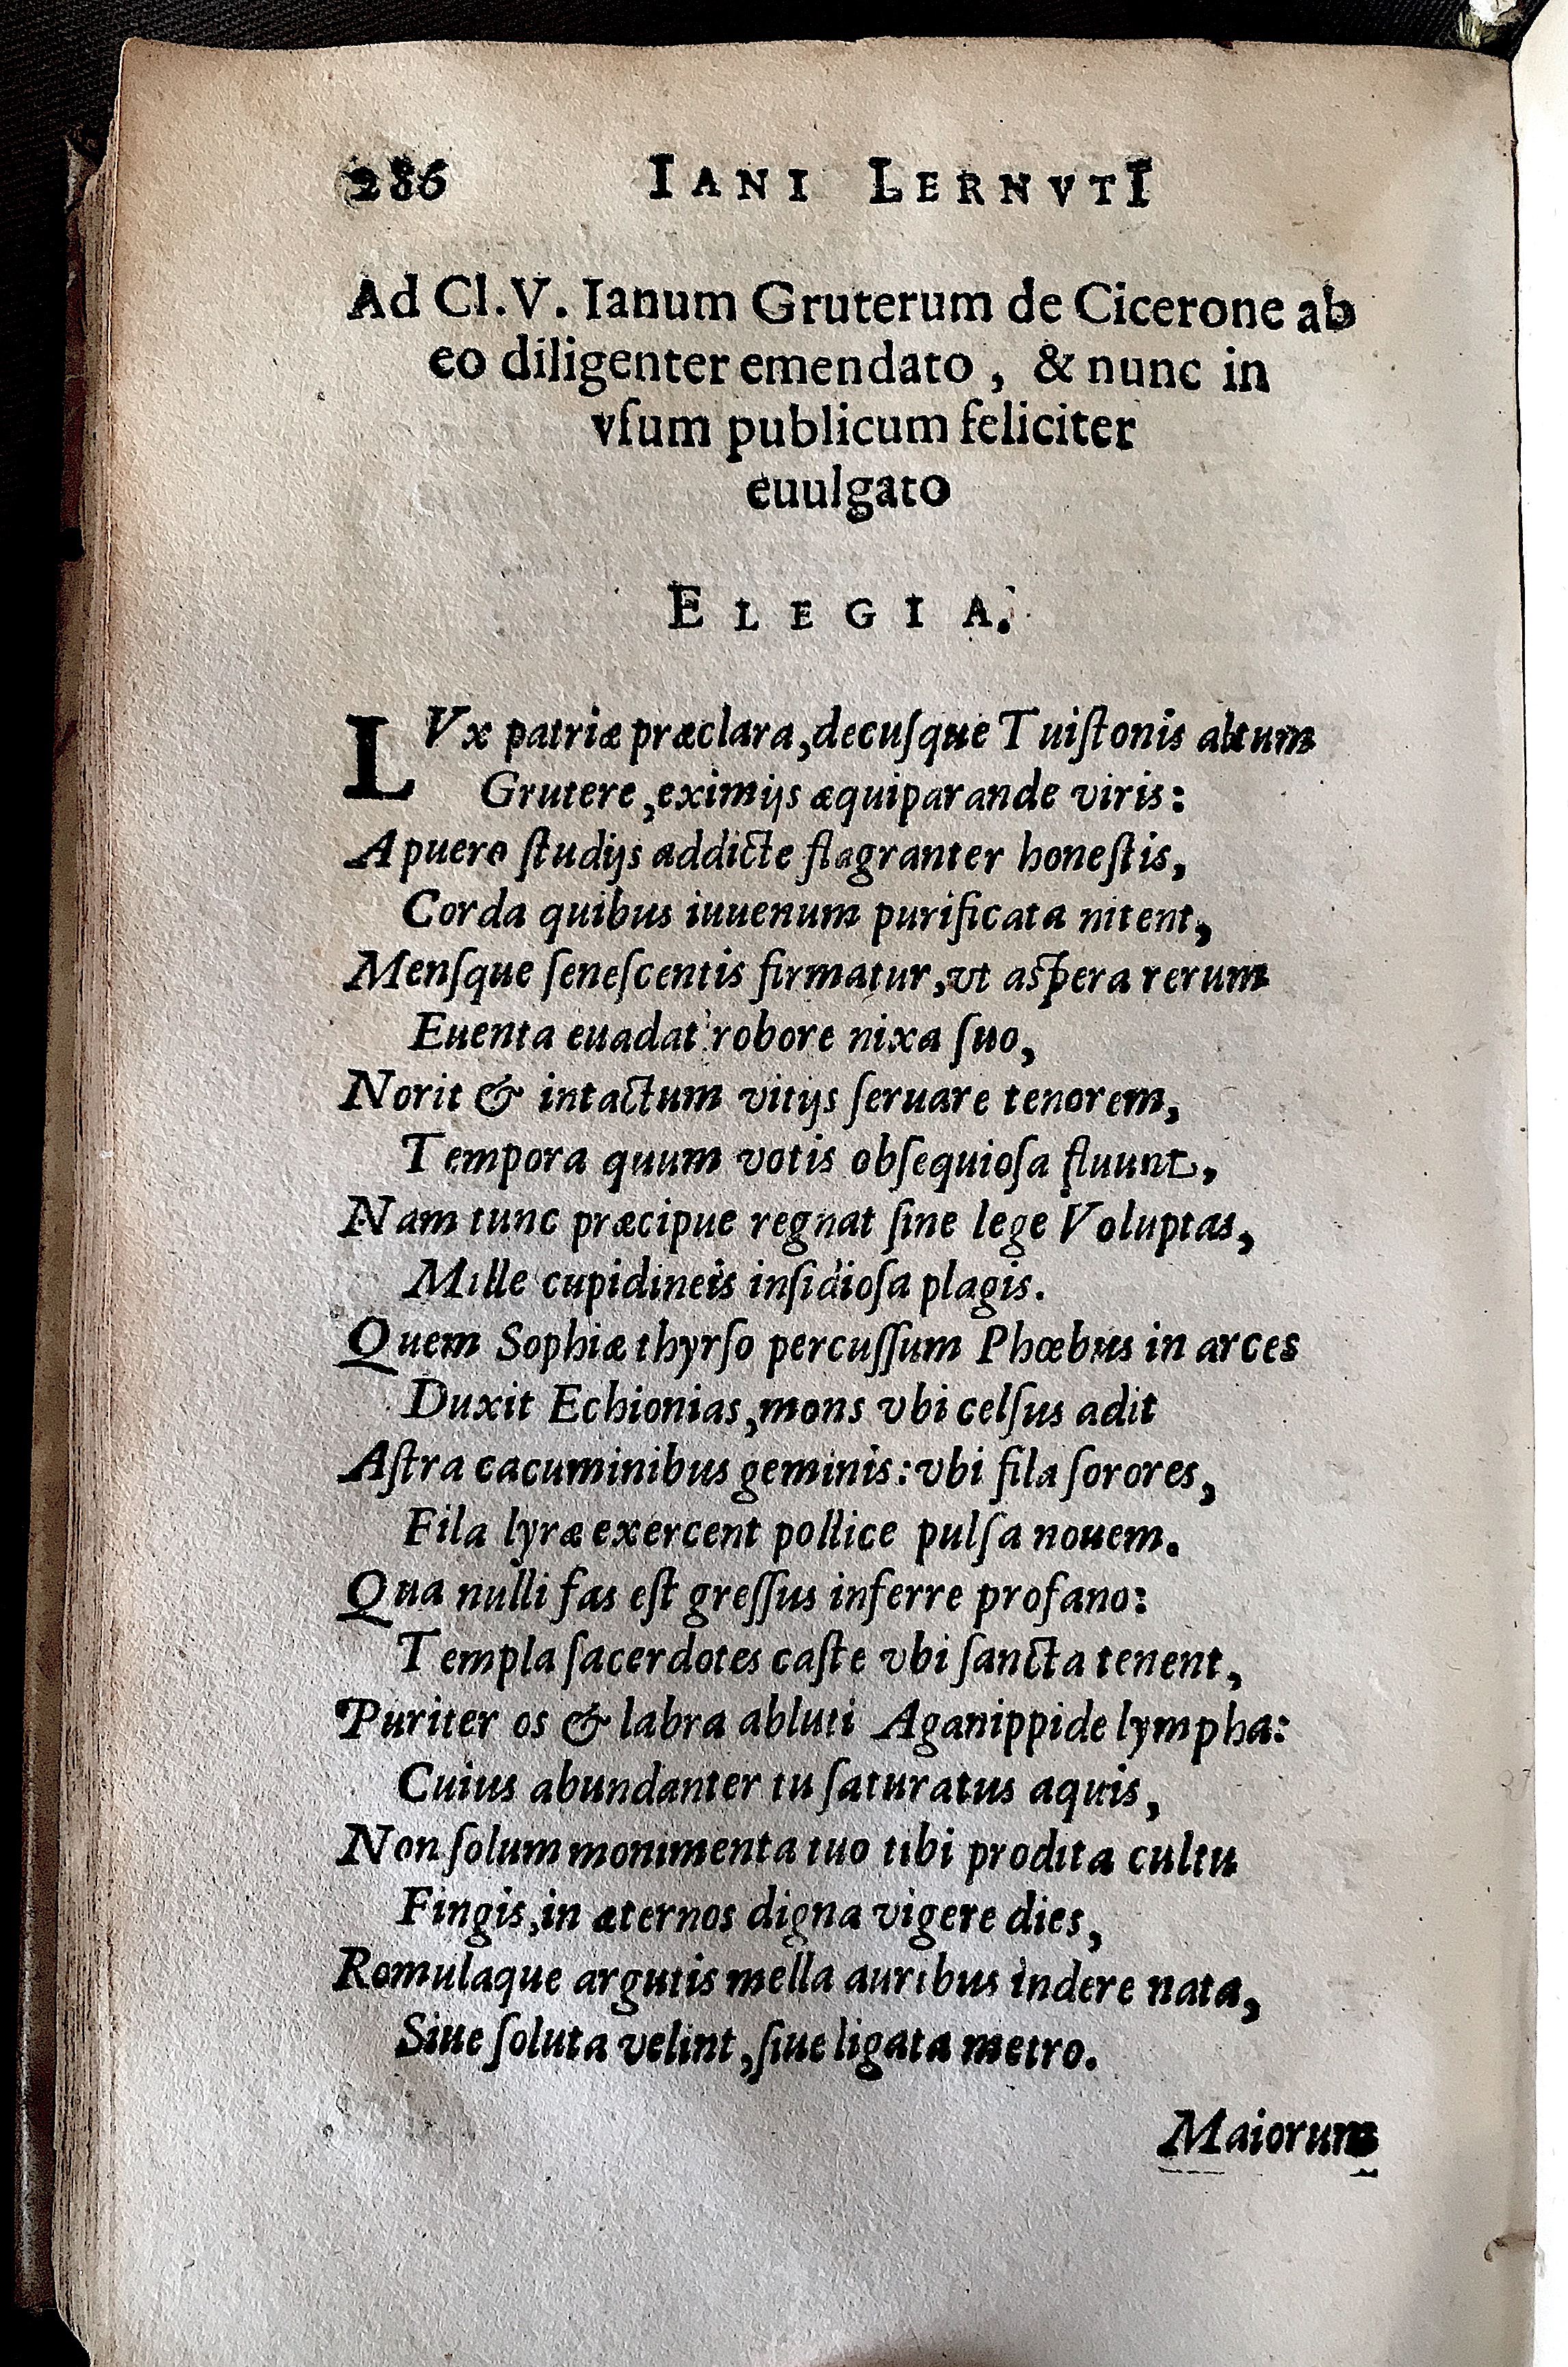 286 IANI LERNVTI
Ad Cl.V. Ianum Gruterum de Cicerone ab
eo diligenter emendato, & nunc in
vſum publicum feliciter
euulgato
ELEGIA.
LVx patriæ præclara, decuſque Tuiſtonis altum
Grutere, eximijs æquiparande viris:
A puero ſtudijs addicte flagranter honeſtis,
Corda quibus iuuenum purificata nitent,
Menſque ſeneſcentis firmatur, vt aſpera rerum
Euenta euadat robore nixa ſuo,
Norit & intactum vitijs ſeruare tenorem,
Tempora quum votis obſequioſa fluunt,
Nam tunc præcipue regnat ſine lege Voluptas,
Mille cupidineis inſidioſa plagis.
Quem Sophiæ thyrſo percuſſum Phœbus in arces
Duxit Echionias, mons vbi celſus adit
Aſtra cacuminibus geminis: vbi fila ſorores,
Fila lyræ exercent pollice pulſa nouem.
Qua nulli fas eſt greſſus inferre profano:
Templa ſacerdotes caſte vbi ſancta tenent,
Puriter os & labra abluti Aganippide lympha:
Cuius abundanter tu ſaturatus aquis,
Non ſolum monimenta tuo tibi prodita cultu
Fingis, in æternos digna vigere dies,
Romulaque argutis mella auribus indere nata,
Siue ſoluta velint, ſiue ligata metro.
Maiorum